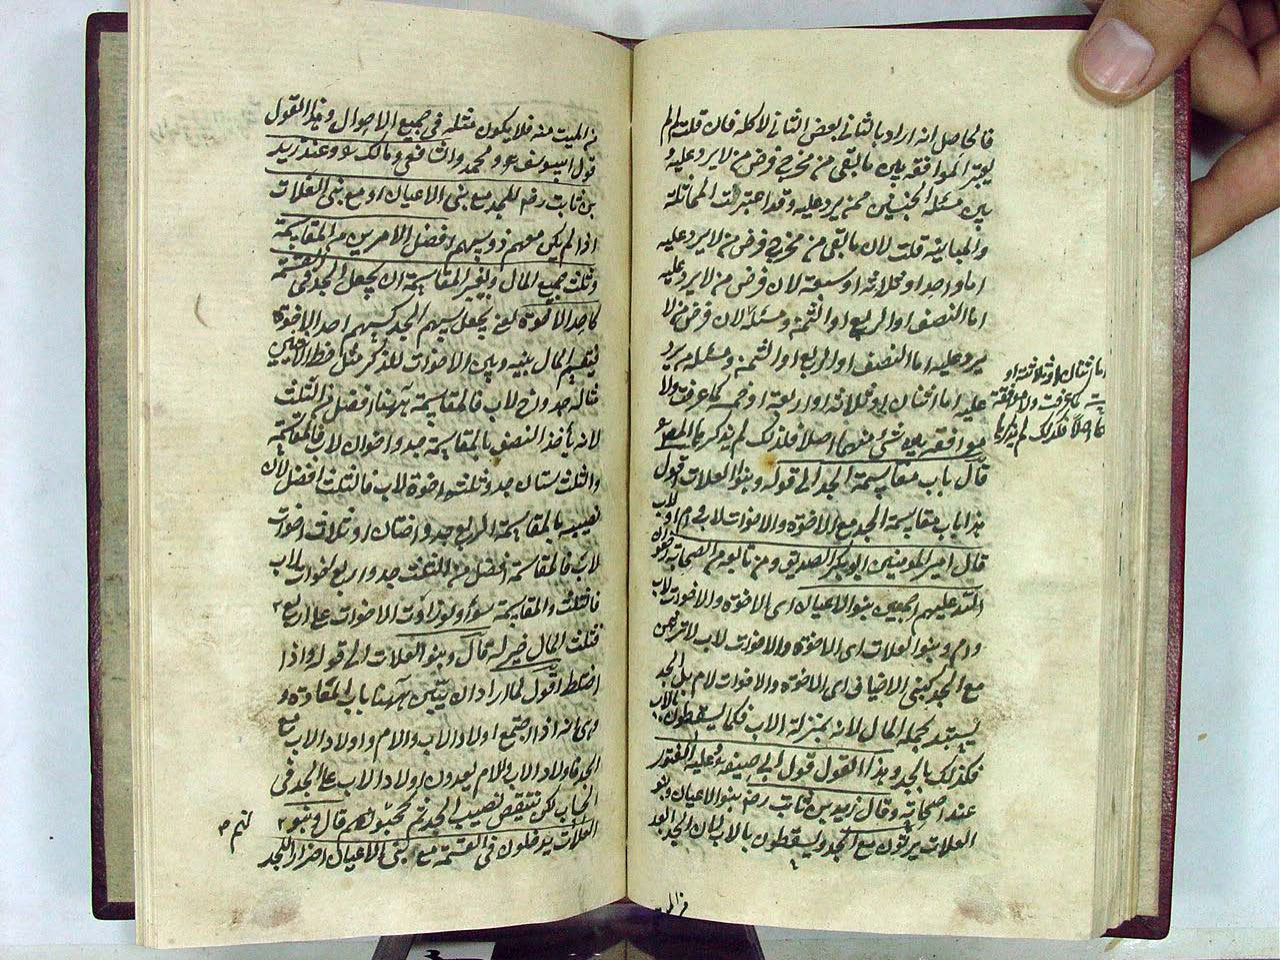 فالحاصل انه اراد بالثاني بعض الثاني لا كله فان قلت لم لم
يعتبر الموافقة بين ما بقي من مخرج فرض من لا يرد عليه و
بين مسئلة الجنسين ممن يرد عليه وقد اعتبرت المماثلة
والمباينة قلت لان ما بقي من مخرج فرض من لا يرد عليه
اما واحد او ثلاثة او سبعة لان فرض من لا يرد عليه
اما النصف او الربع او الثمن ومسئلة لان فرض من لا
يرد عليه اما النصف او الربع او الثمن ومسئلة من يرد
عليه اما اثنان او ثلاثة او اربعة او خمسة كما عرفت ولا
موافقة بين شئ منهما اصلا فلذلك لم يذكرها المص
قال باب مقاسمة الجد الى قوله وبنوا العلات اقول
هذا باب مقاسمة الجد مع الاخوة والاخوات لاب وام او لاب
قال امير المومنين ابو بكر الصديق ومن تابعه من الصحابة رضوان
الله عليهم اجمعين بنوا الاعيان اى الاخوة والاخوات لاب
وام وبنوا العلات اى الاخوة والاخوات لاب لا ترثون
مع الجد كبني الاخياف اى الاخوة والاخوات لام بل الجد
يستبد بجملة المال لانه بمنزلة الاب فكما يسقطون بالاب
فكذلك بالجد وهذا القول قول ابى حنيفة وعليه الفتوى
عند اصحابه وقال زيد بن ثابت رض بنوا الاعيان وبنو
العلات يرثون مع الجد ولا يسقطون بالاب لان الجد ابعد
من الميت
اما اثنان او ثلاثة او
كما عرفت ولا موافقة
اصلا فلذلك لم يذكرها
من الميت منه فلا يكون مثله في جميع الاحوال وهذا القول
قول ابي يوسف ومحمد والشافعي ومالك وعند زيد
بن ثابت رض للجد مع بني الاعيان او مع بني العلات
اذا لم يكن معهم ذو سهم افضل الامرين من المقاسمة
وثلث جميع المال وتفسير المقاسمة ان يجعل الجد في القسمة
كاحد الاخوة يعني يجعل سهم الجد كسهم احد الاخوة
فيقسم المال بينه وبين الاخوات للذكر مثل حظ الانثيين
مثاله جد واخ لاب فالمقاسمة ههنا افضل من الثلث
لانه يأخذ النصف بالمقاسمة جد واخوان لاب فالمقاسمة
والثلث ستان جد وثلثة اخوة لاب فالثلث افضل لان
نصيبه بالمقاسمة الربع جد واختان او ثلاث اخوات
لاب فالمقاسمة افضل من الثلث جد واربع اخوات لاب
فالثلث والمقاسمة سواء ولو زادت الاخوات على اربع
فثلث المال خير له قال وبنوا العلات الى قوله واذا
اختلط اقول لما اراد ان يبين ههنا باب المعادة و
وهى انه اذا اجتمع اولاد الاب والام واولاد الاب مع
الجد فاولاد الاب والام يعدون اولاد الاب على الجد في
الحساب لكي ينتقص نصيب الجد ثم قال وبنو
العلات يدخلون في القسمة مع بني الاعيان اضرارا للجد